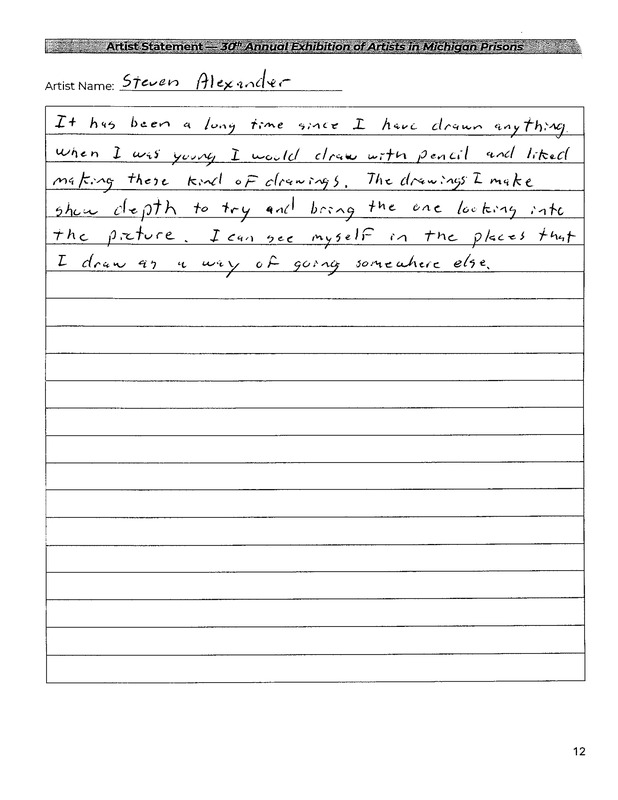 Artist Statement — 30th Annual Exhibition of Artists in Michigan Prisons
Artist Name: Steven Alexander
It has been a long time since I have drawn anything.
when I was young I would draw with pencil and liked
making these kind of drawings. The drawings I make
show depth to try and bring the one looking into
the picture. I can see myself in the places that
I draw as a way of going somewhere else.
12